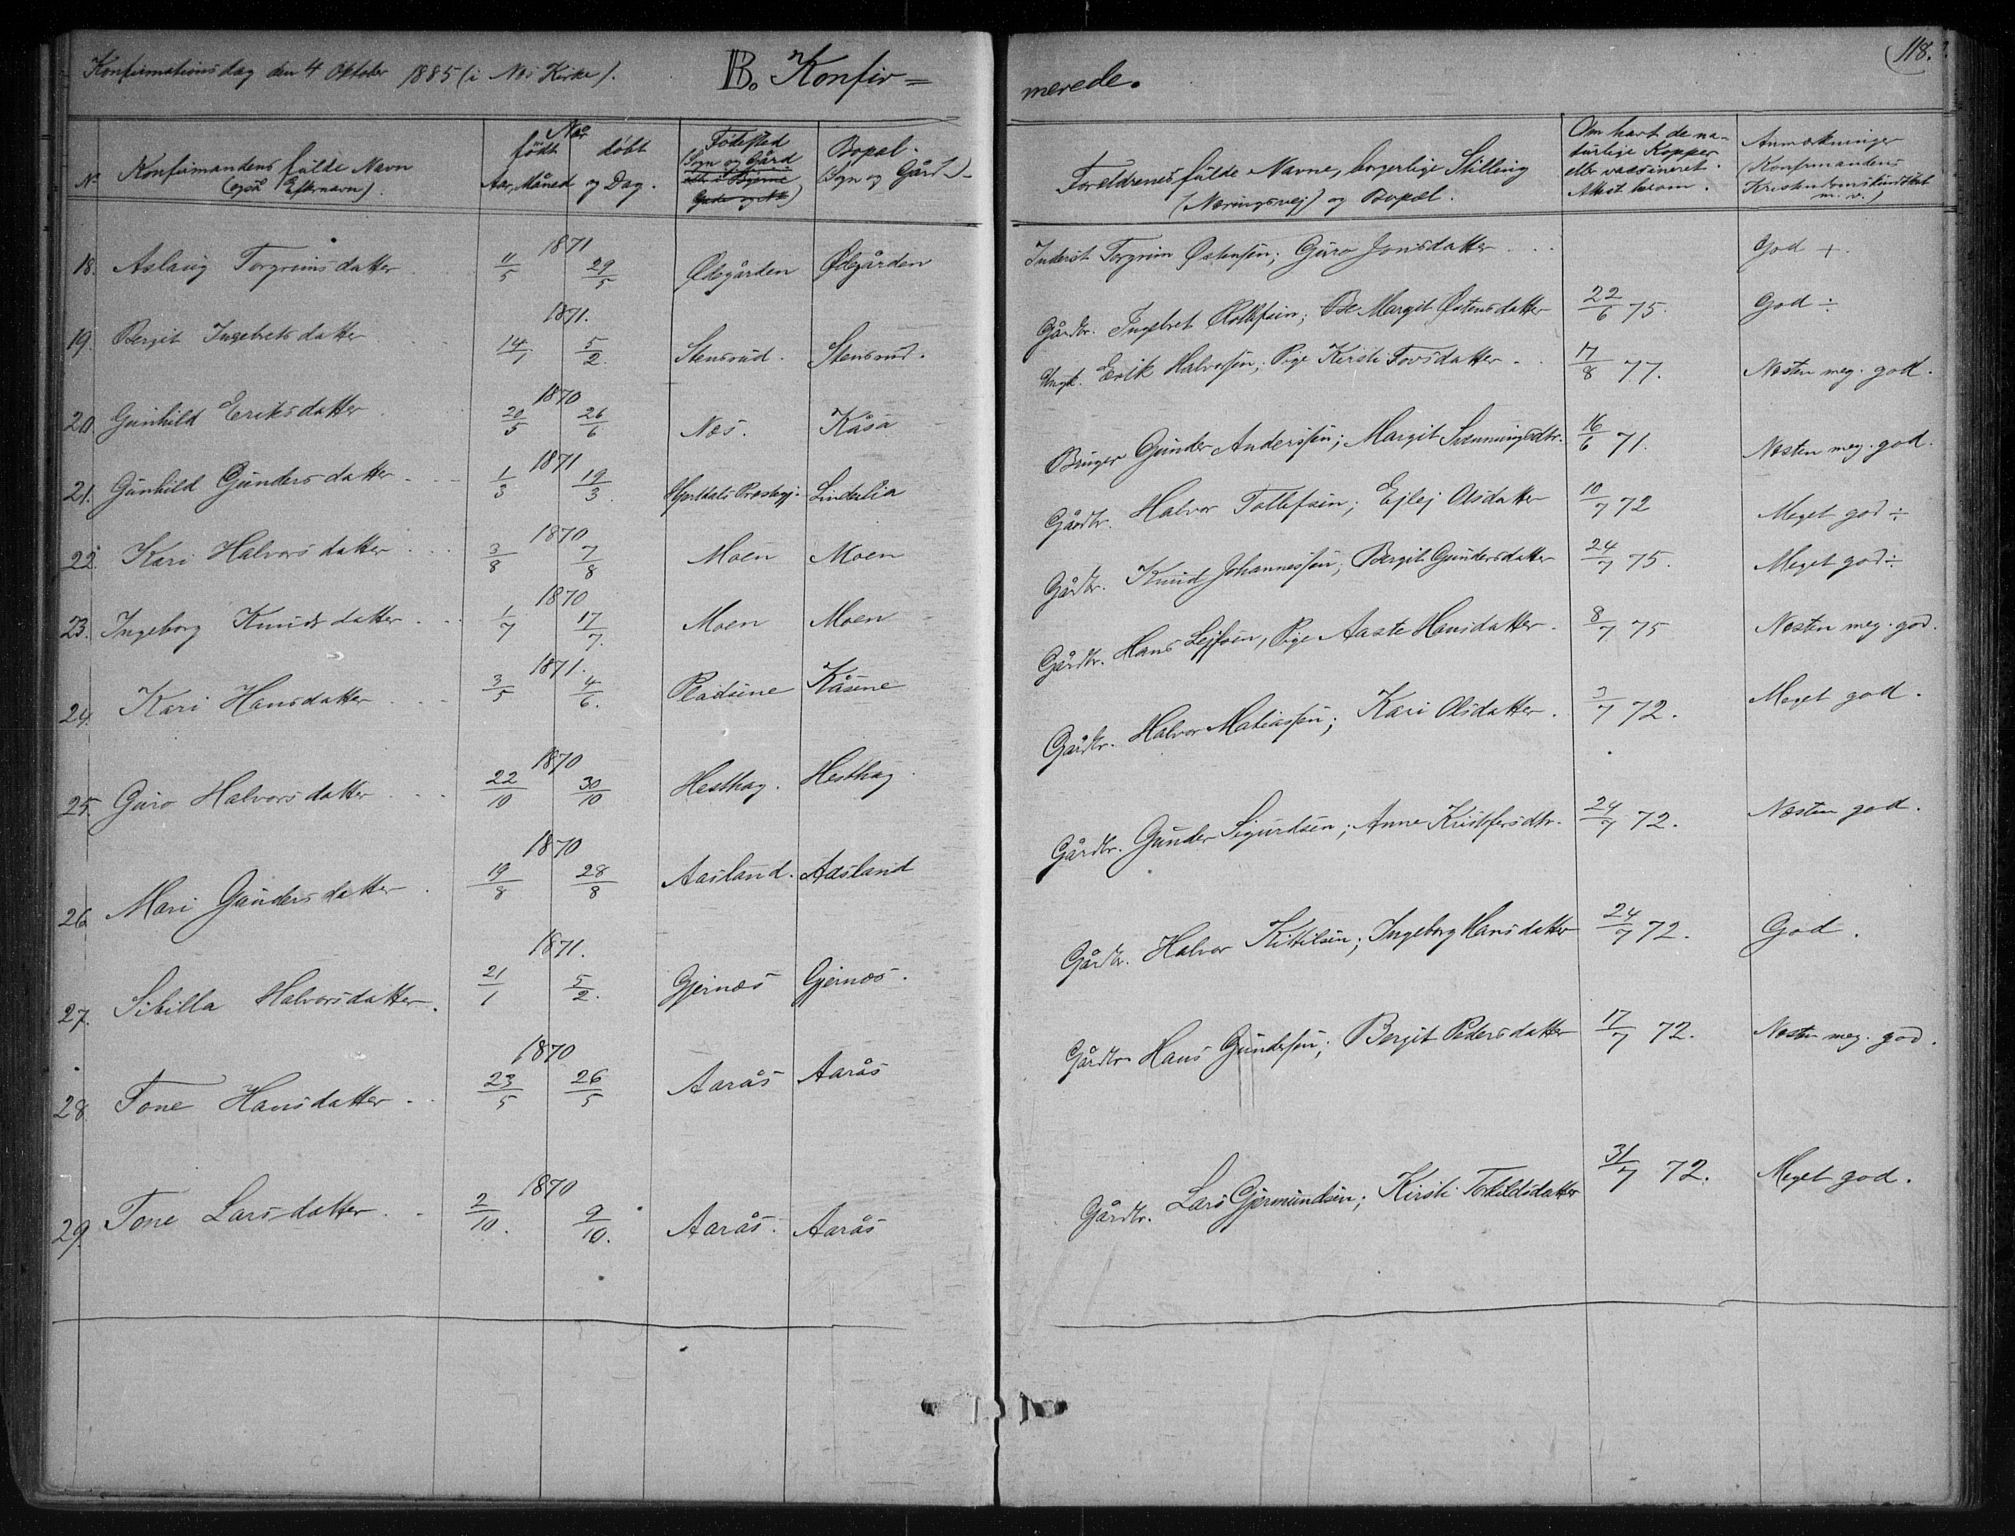 Konfirmationsdag den 4 Oktober 1885 (i Nes Kirke). B. Konfir=
merede. 118.
No Konfirmandens fulde Navn (også Efternavn). Når født døbt Aar, Måned og Dag. Fødested (Sogn og Gård) Bopæl. (Sogn og Gård)
Foreldrenes fulde Navne, borgerlige Stilling (Næringsvej) og Bopæl. Om havt de naturlige Kopper eller vaccineret. Attest herom. Anmærkninger (Konfirmandens Kristendomskundskab m. v.)
18. Aslaug Torgrimsdatter 1871 11/5 29/5 Ødegården Ødegården Inderst Torgrim Østensen; Guro Jonsdatter God +.
19. Bergit Ingebretsdatter 1871. 14/1 5/2 Stensrud. Stensrud. Gårdbr. Ingebret Rollefsen; Margit Østensdatter 22/6 75. God ÷
20. Gunhild Eriksdatter 1870 20/5 26/6 Nes. Kåsa Ungk. Erik Halvorsen; Pige Kirsti Tovsdatter. 17/8 77. Næsten meg. god.
21. Gunhild Gundersdatter 1871 1/3 19/3 Hjertdals Præstegj. Linderlia Bruger Gunder Anderssen; Margit Svenningsdtr. 16/6 71. Næsten meg. god.
22. Kari Halvorsdatter 1870 3/8 7/8 Moen Moen Gårdbr. Halvor Tollefsen; Ejlej Olsdatter 10/7 72 Meget god ÷
23. Ingeborg Knudsdatter 1870 1/7 17/7. Moen Moen Gårdbr. Knud Johannessen; Bergit Gundersdatter 24/7 75. Meget god ÷
24. Kari Hansdatter 1871. 3/5 4/6. Pladsene Kåsene Gårdbr. Hans Lejfsen, Pige Aaste Hansdatter. 8/7 75 Næsten meg. god.
25. Guro Halvorsdatter 1870 22/10 30/10 Hesthag. Hesthag. Gårdbr. Halvor Matiassen; Kari Olsdatter. 3/7 72. Meget god.
26. Mari Gundersdatter 1870 19/8 28/8 Aasland. Aasland Gårdbr. Gunder Sigurdsen; Anne Kristofersdtr. 24/7 72. Næsten god.
27. Sibilla Halvorsdatter. 1871. 21/1 5/2. Gjernes Gjernes. Gårdbr. Halvor Kittilsen; Ingeborg Hansdatter 24/7 72. God.
28. Tone Hansdatter. 1870 23/5 26/5 Aarås Aarås Gårdbr. Hans Gundersen; Bergit Pedersdatter 17/7 72. Næsten meg. god.
29. Tone Larsdatter. 1870 2/10. 9/10. Aarås. Aarås Gårdbr. Lars Gjermundsen; Kirsti Torkildsdatter 31/7 72. Meget god.